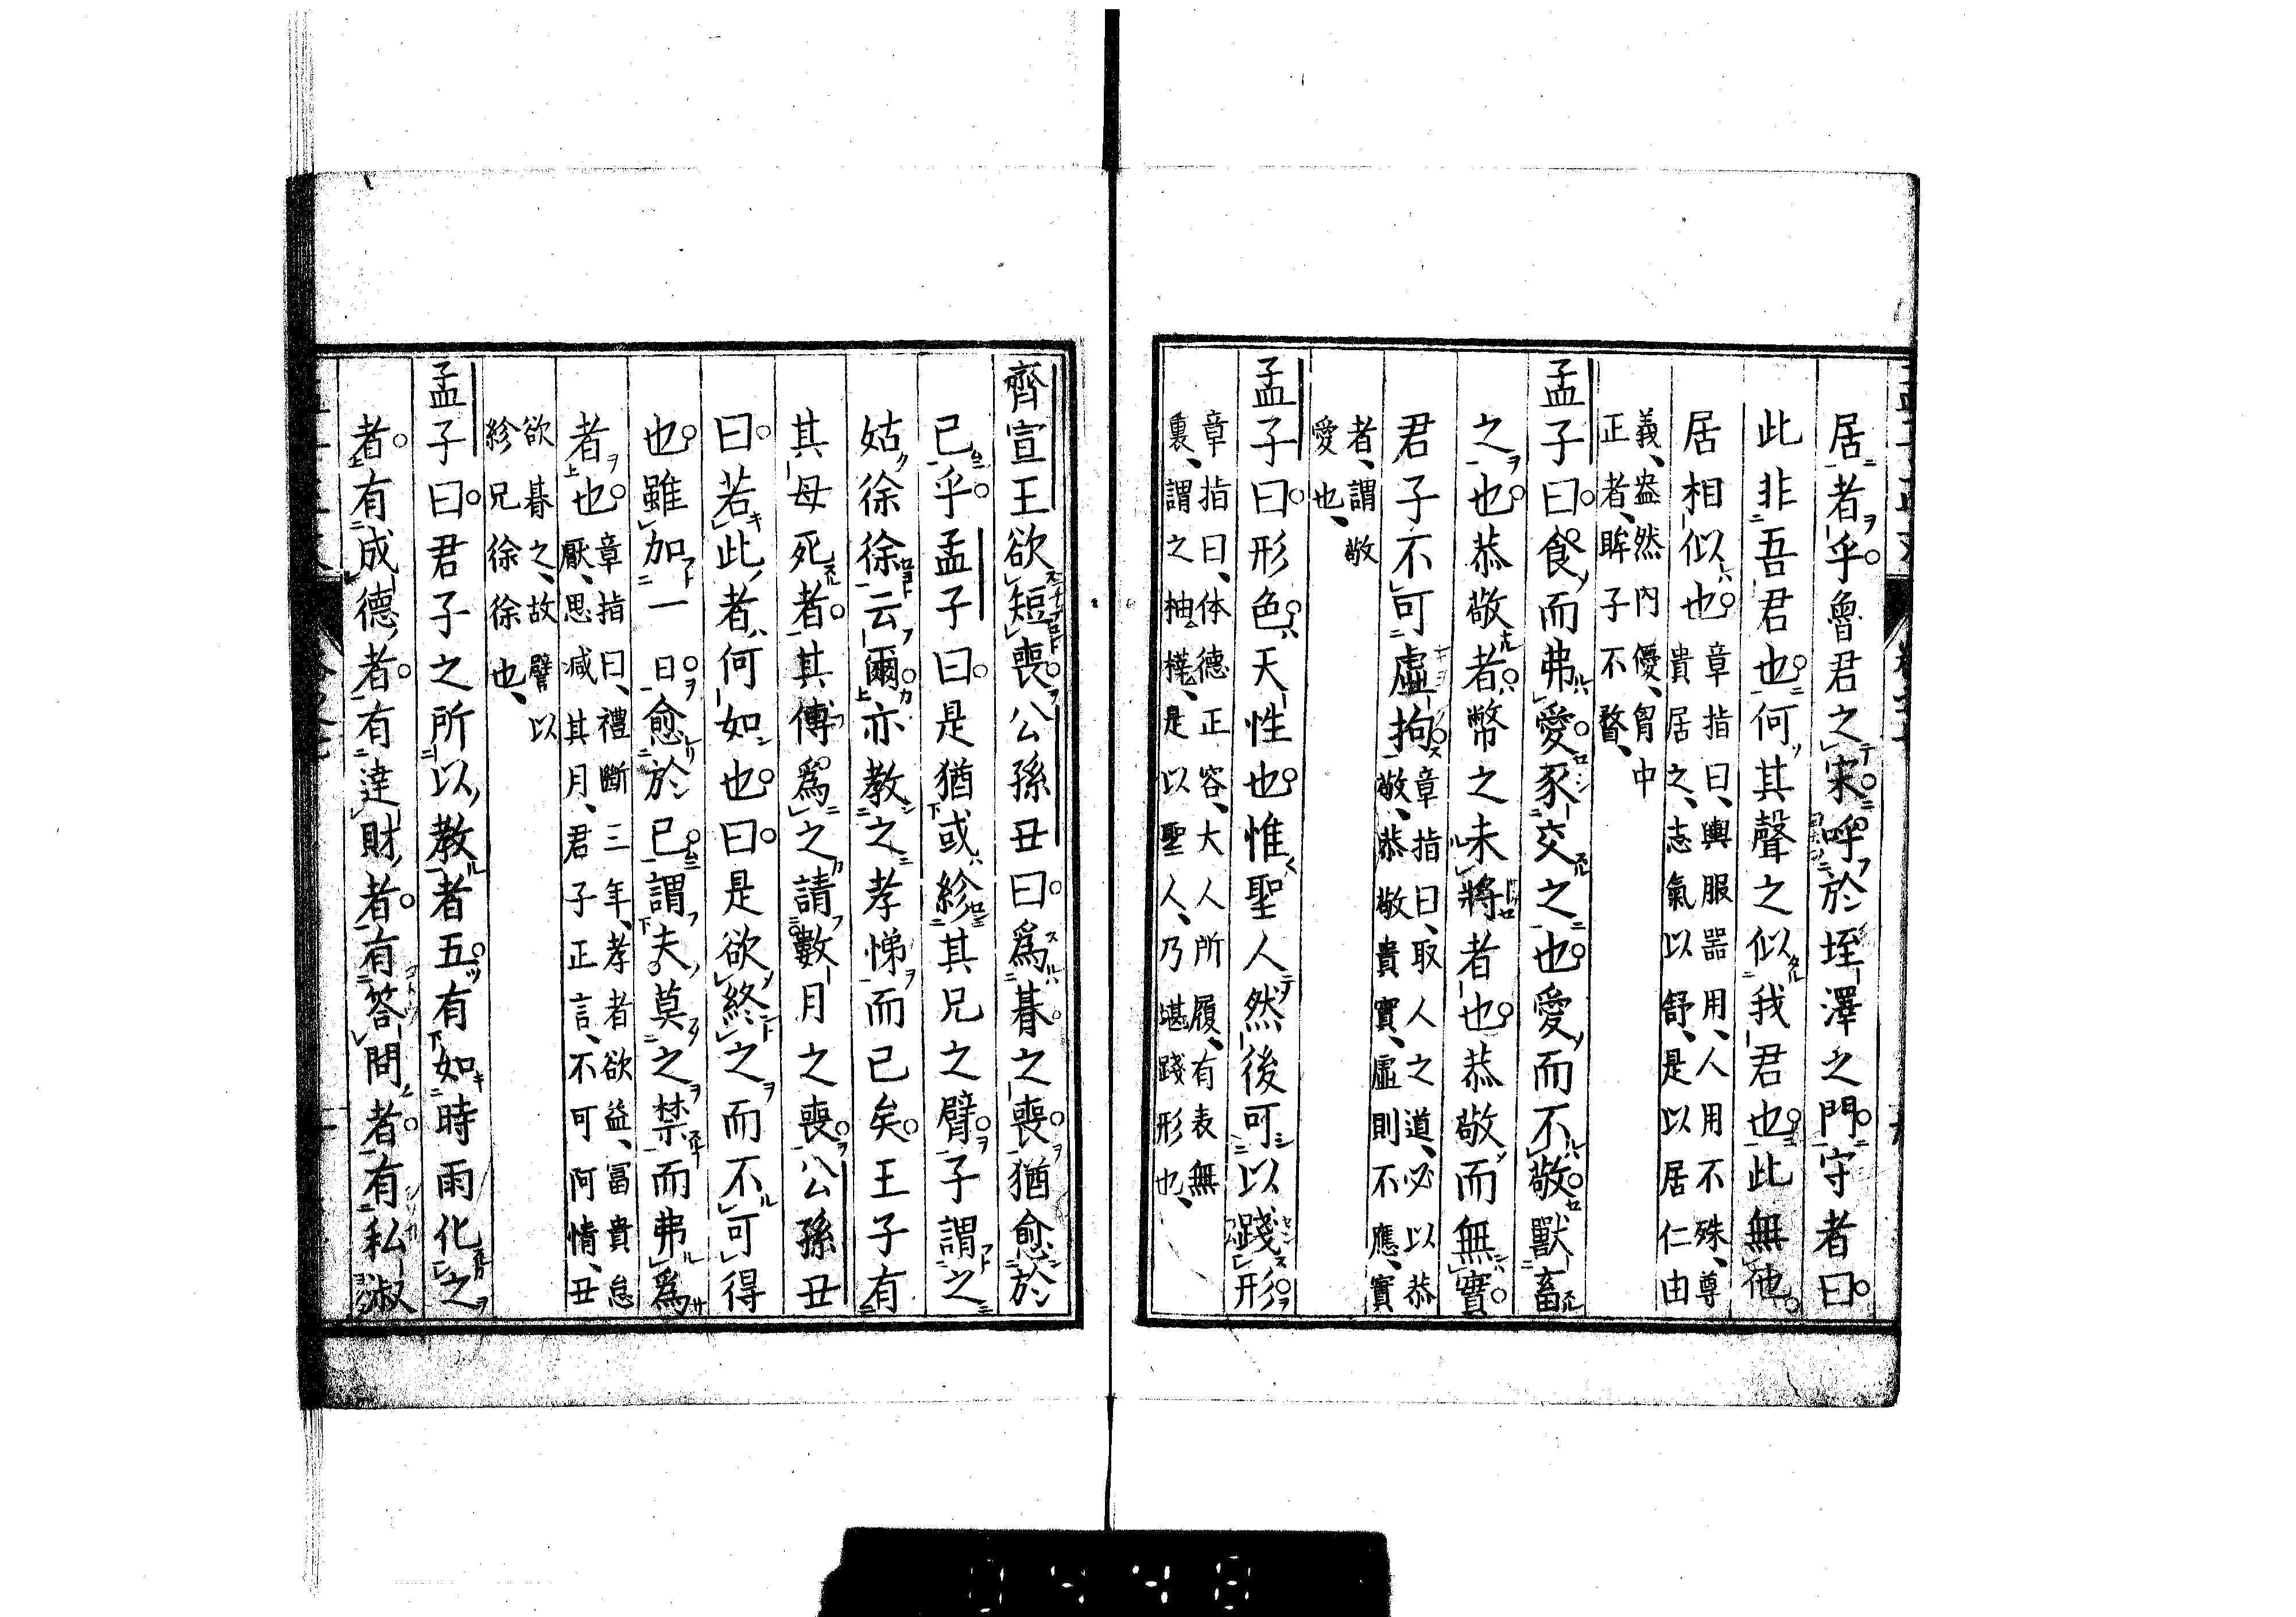 居者乎魯君之宋呼於垤澤之門守者曰
此非吾君也何其聲之似我君也此無他
居相似也
章指曰輿服器用人用不殊尊
貴居之志氣以舒是以居仁由
義盎然內優胷中
正者眸子不瞀
孟子曰食而弗愛豕交之也愛而不敬獸畜
之也恭敬者幣之未將者也恭敬而無實
君子不可虛拘
章指曰取人之道必以恭
敬恭敬貴實虛則不應實
者謂敬
愛也
孟子曰形色天性也惟聖人然後可以踐形
章指曰体德正容大人所履有表無
裏謂之柚櫁是以聖人乃堪踐形也
齊宣王欲短喪公孫丑曰爲朞之喪猶愈於
已乎孟子曰是猶或紾其兄之臂子謂之
姑徐徐云爾亦教之孝悌而已矣王子有
其母死者其傅爲之請數月之喪公孫丑
曰若此者何如也曰是欲終之而不可得
也雖加一日愈於已謂夫莫之禁而弗爲
者也
章指曰禮斷三年孝者欲益冨貴怠
厭思减其月君子正言不可阿情丑
欲朞之故譬以
紾兄徐徐也
孟子曰君子之所以教者五有如時雨化之
者有成德者有達財者有答問者有私淑